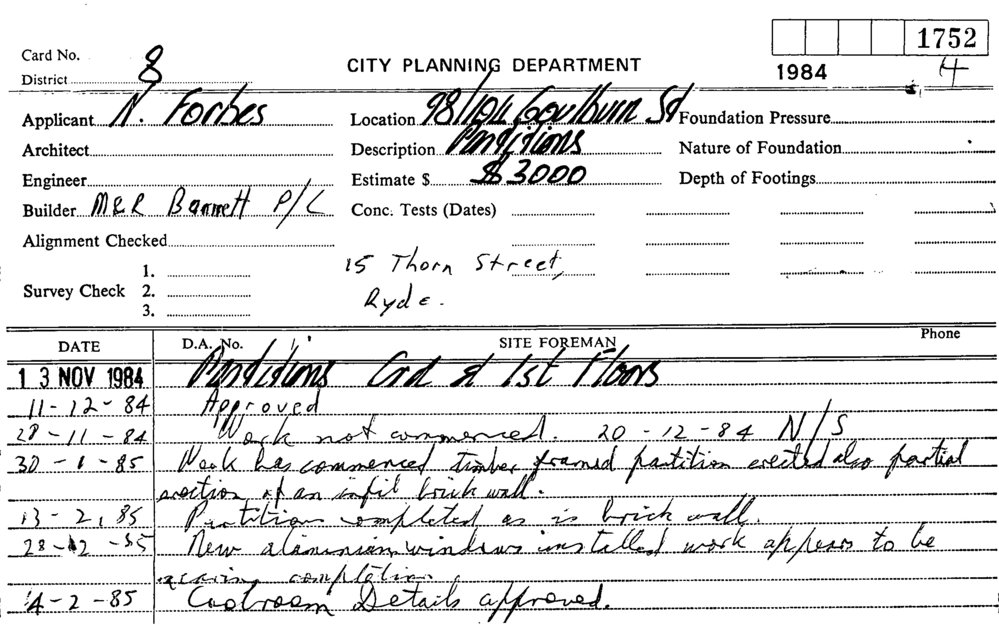 1752
Card No. 8
District
CITY PLANNING DEPARTMENT
1984
4
Applicant N. Forbes
Location 98/104 Goulburn St
Foundation Pressure
Architect
Description Partitions
Nature of Foundation
Engineer
Estimate $ $3000
Depth of Footings
Builder M&R Bannett P/L
Conc. Tests (Dates)
Alignment Checked
15 Thorn Street,
Survey Check 1.
2.
3.
Ryde.
DATE
D.A. No.
SITE FOREMAN
Phone
13 NOV 1984 Partitions Grd & 1st Floors
11-12-84 Approved
28-11-84 Work not commenced. 20-12-84 N/S
30-1-85 Work has commenced timber framed partition erected also partial
erection of an infil brick wall.
13-2-85 Partition completed as is brick wall.
28-2-85 New aluminium windows installed work appears to be
nearing completion.
4-2-85 Coolroom Details approved.